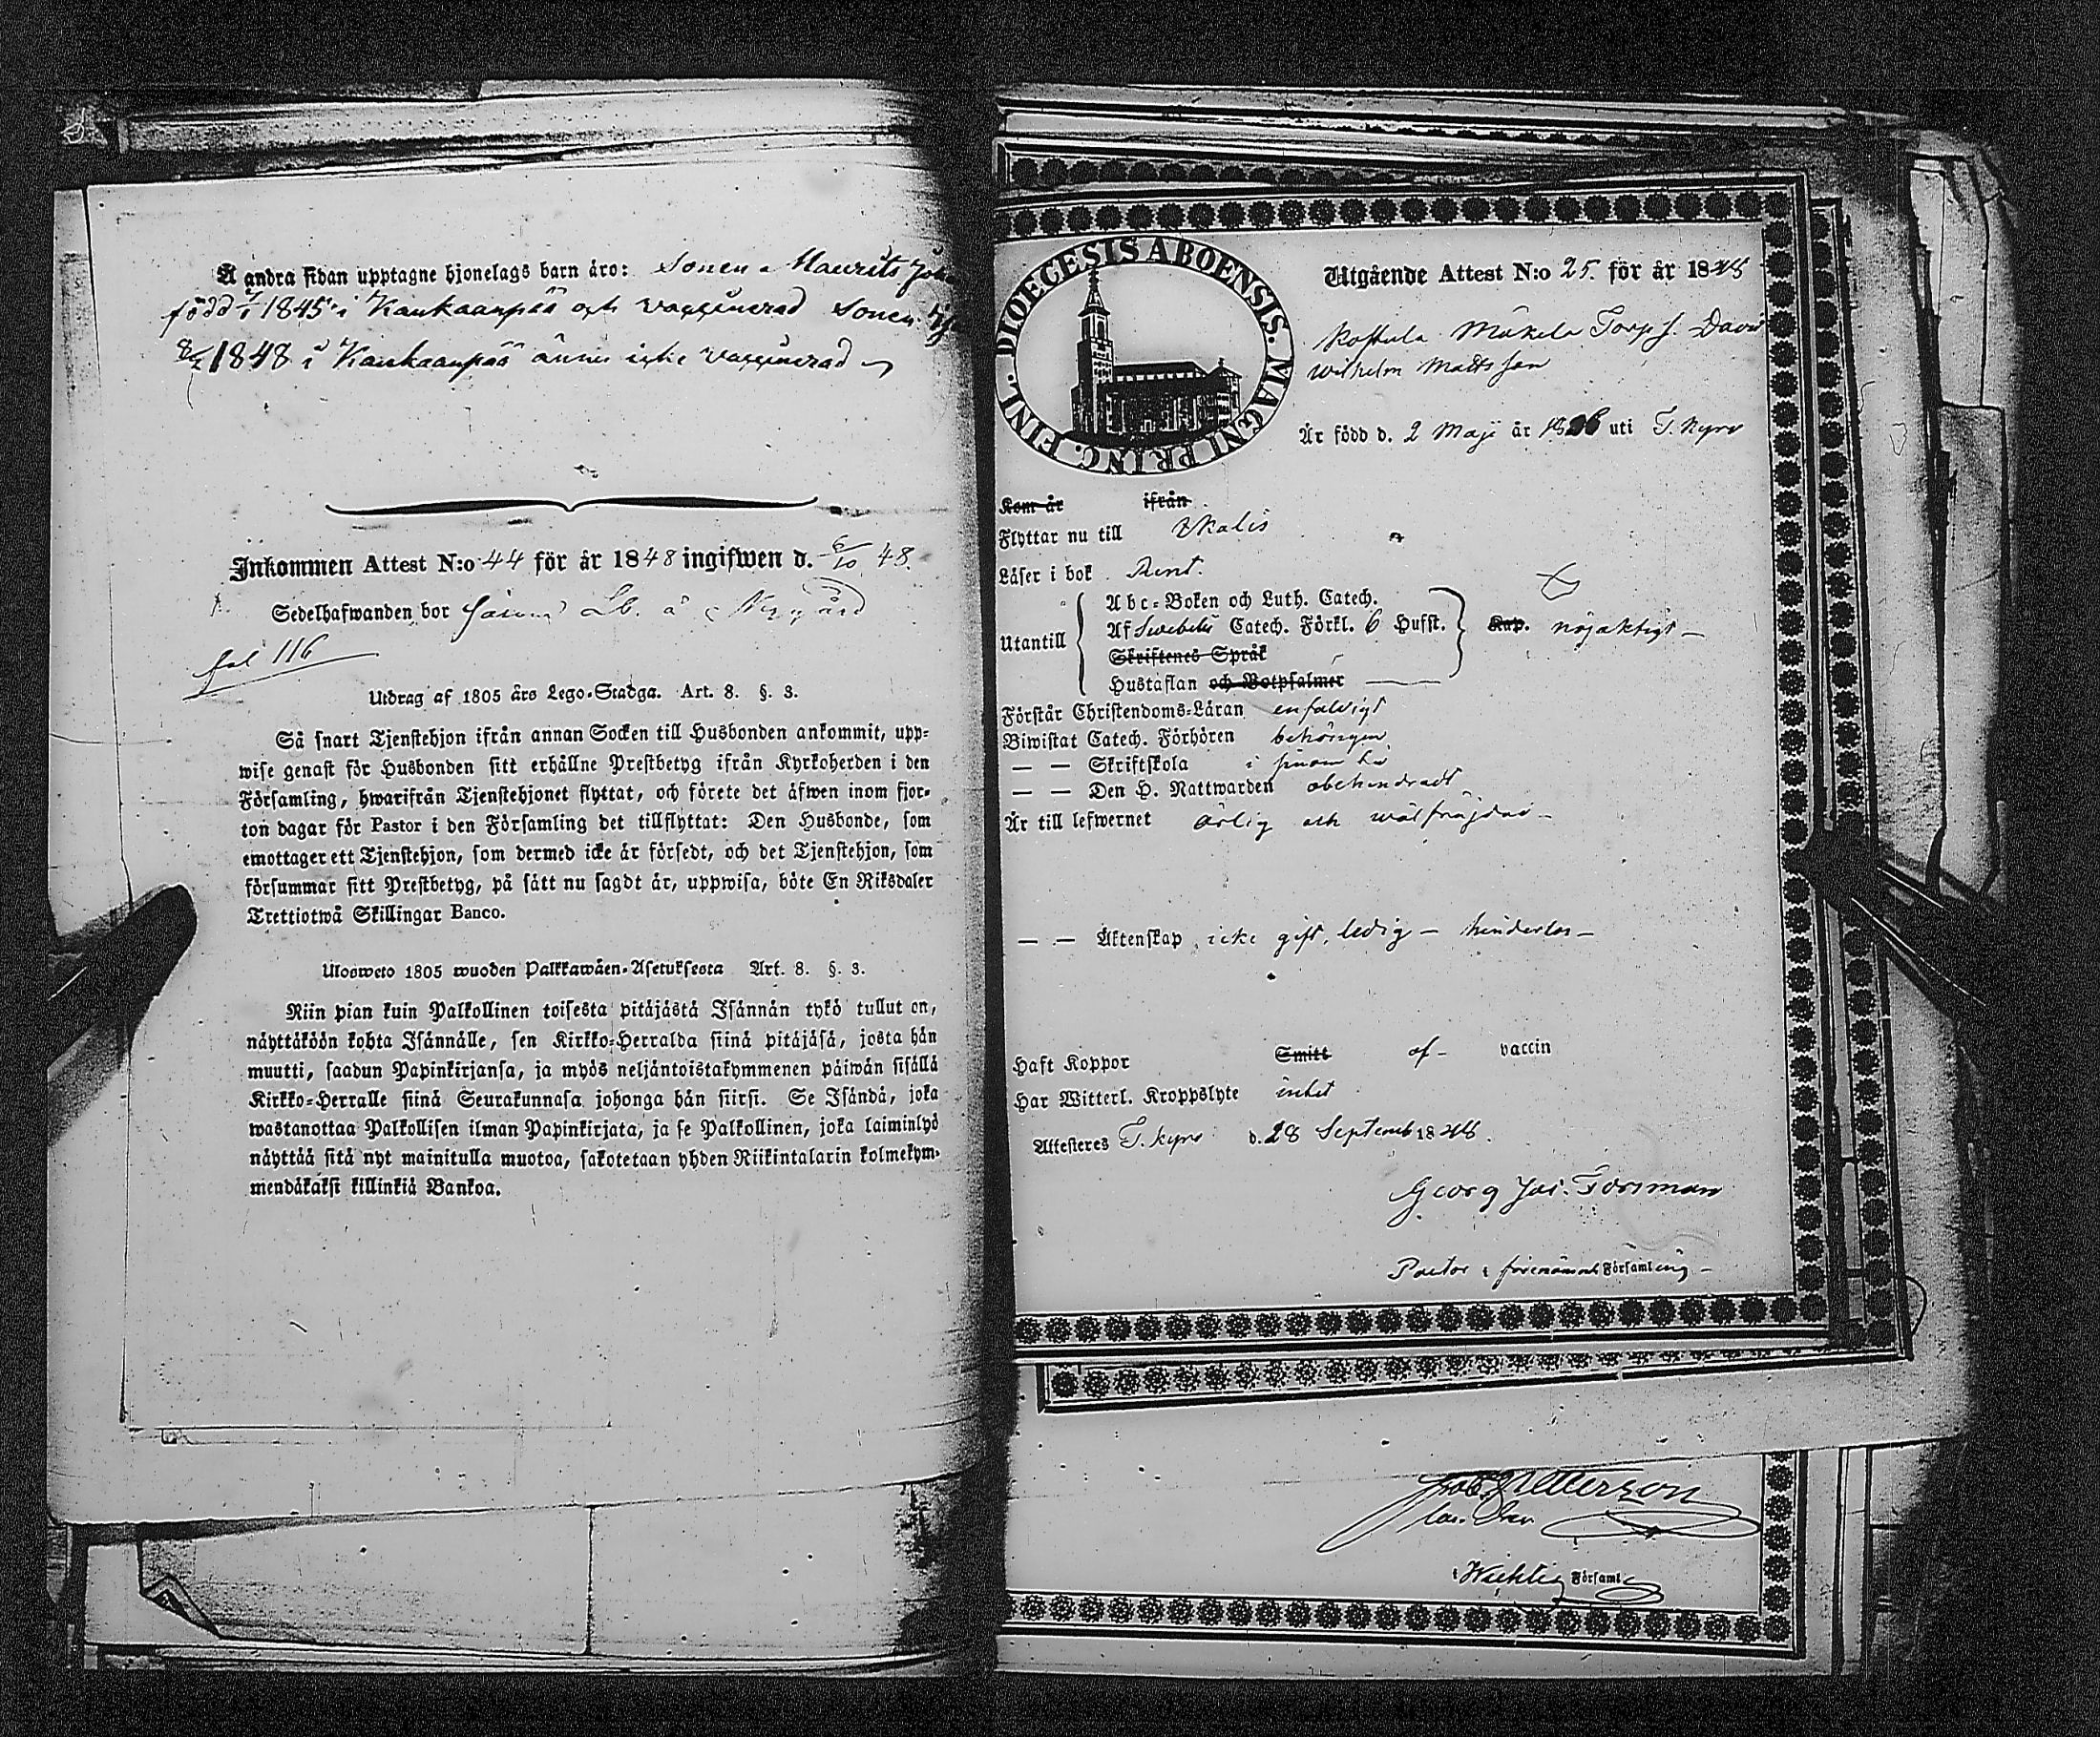 Å andra sidan upptagne hjonelags barn äro: Sonen Maurits Joha
född 1845 i Kankaanpää och vaccinerad Sonen
1848 i Kankaanpää ännu icke vaccinerad
Inkommen Attest N:o 44 för år 1848 ingifwen d. 6/10 48.
Sedelhafwanden bor
fol 116
Utdrag af 1805 års Lego-Stadga. Art. 8. §. 3.
Så snart Tjenstehjon ifrån annan Socken till Husbonden ankommit, upp=
wise genast för Husbonden sitt erhållne Prestbetyg ifrån Kyrkoherden i den
Församling, hwarifrån Tjenstehjonet flyttat, och förete det äfwen inom fjor=
ton dagar för Pastor i den Församling det tillflyttat: Den Husbonde, som
emottager ett Tjenstehjon, som dermed icke är försedt, och det Tjenstehjon, som
försummar sitt Prestbetyg, på sätt nu sagdt är, uppwisa, böte En Riksdaler
Trettiotwå Skillingar Banco.
Ulosweto 1805 wuoden Palkkawäen-Asetuksesta Art. 8. §. 3.
Niin pian kuin Palkollinen toisesta pitäjästä Isännän tykö tullut on,
näyttäköön kohta Isännälle, sen Kirkko=Herralda siinä pitäjäsä, josta hän
muutti, saadun Papinkirjansa, ja myös neljäntoistakymmenen päiwän sisällä
Kirkko=Herralle siinä Seurakunnasa johonga hän siirsi. Se Isändä, joka
wastanottaa Palkollisen ilman Papinkirjata, ja se Palkollinen, joka laiminlyö
näyttää sitä nyt mainitulla muotoa, sakotetaan yhden Riikintalarin kolmekym=
mendäkaksi killinkiä Bankoa.
DIOECESIS ABOENSIS. MAGNI PRINC. FINL.
Utgående Attest N:o 25. för år 1848
Mäkelä Torp David
Wilhelm Mattsson
Är född d. 2 Maji år uti T. Kyro
Kom år ifrån
Flyttar nu till Ikalis
Läser i bok Rent.
Utantill
Abc=Boken och Luth. Catech.
Af Swebelii Catech. Förkl. 6 Hufst.
Skriftenes Språk
Hustaflan och Botpsalmer
Kap. nöjaktigt
Förstår Christendoms=Läran enfaldigt
Biwistat Catech. Förhören behörigen
— — Skriftskola i
— — Den H. Nattwarden obehindradt
Är till lefwernet ärlig och wälfräjdad
— — Äktenskap icke gift, ledig — hinderlös —
Haft Koppor Smitt af vaccin
Har Witterl. Kroppslyte intet
Attesteres T. Kyro d. 28 Septemb 1848.
Georg Jac. Forsman
Pastor i förenämnde Församling
Petterson
i Församl